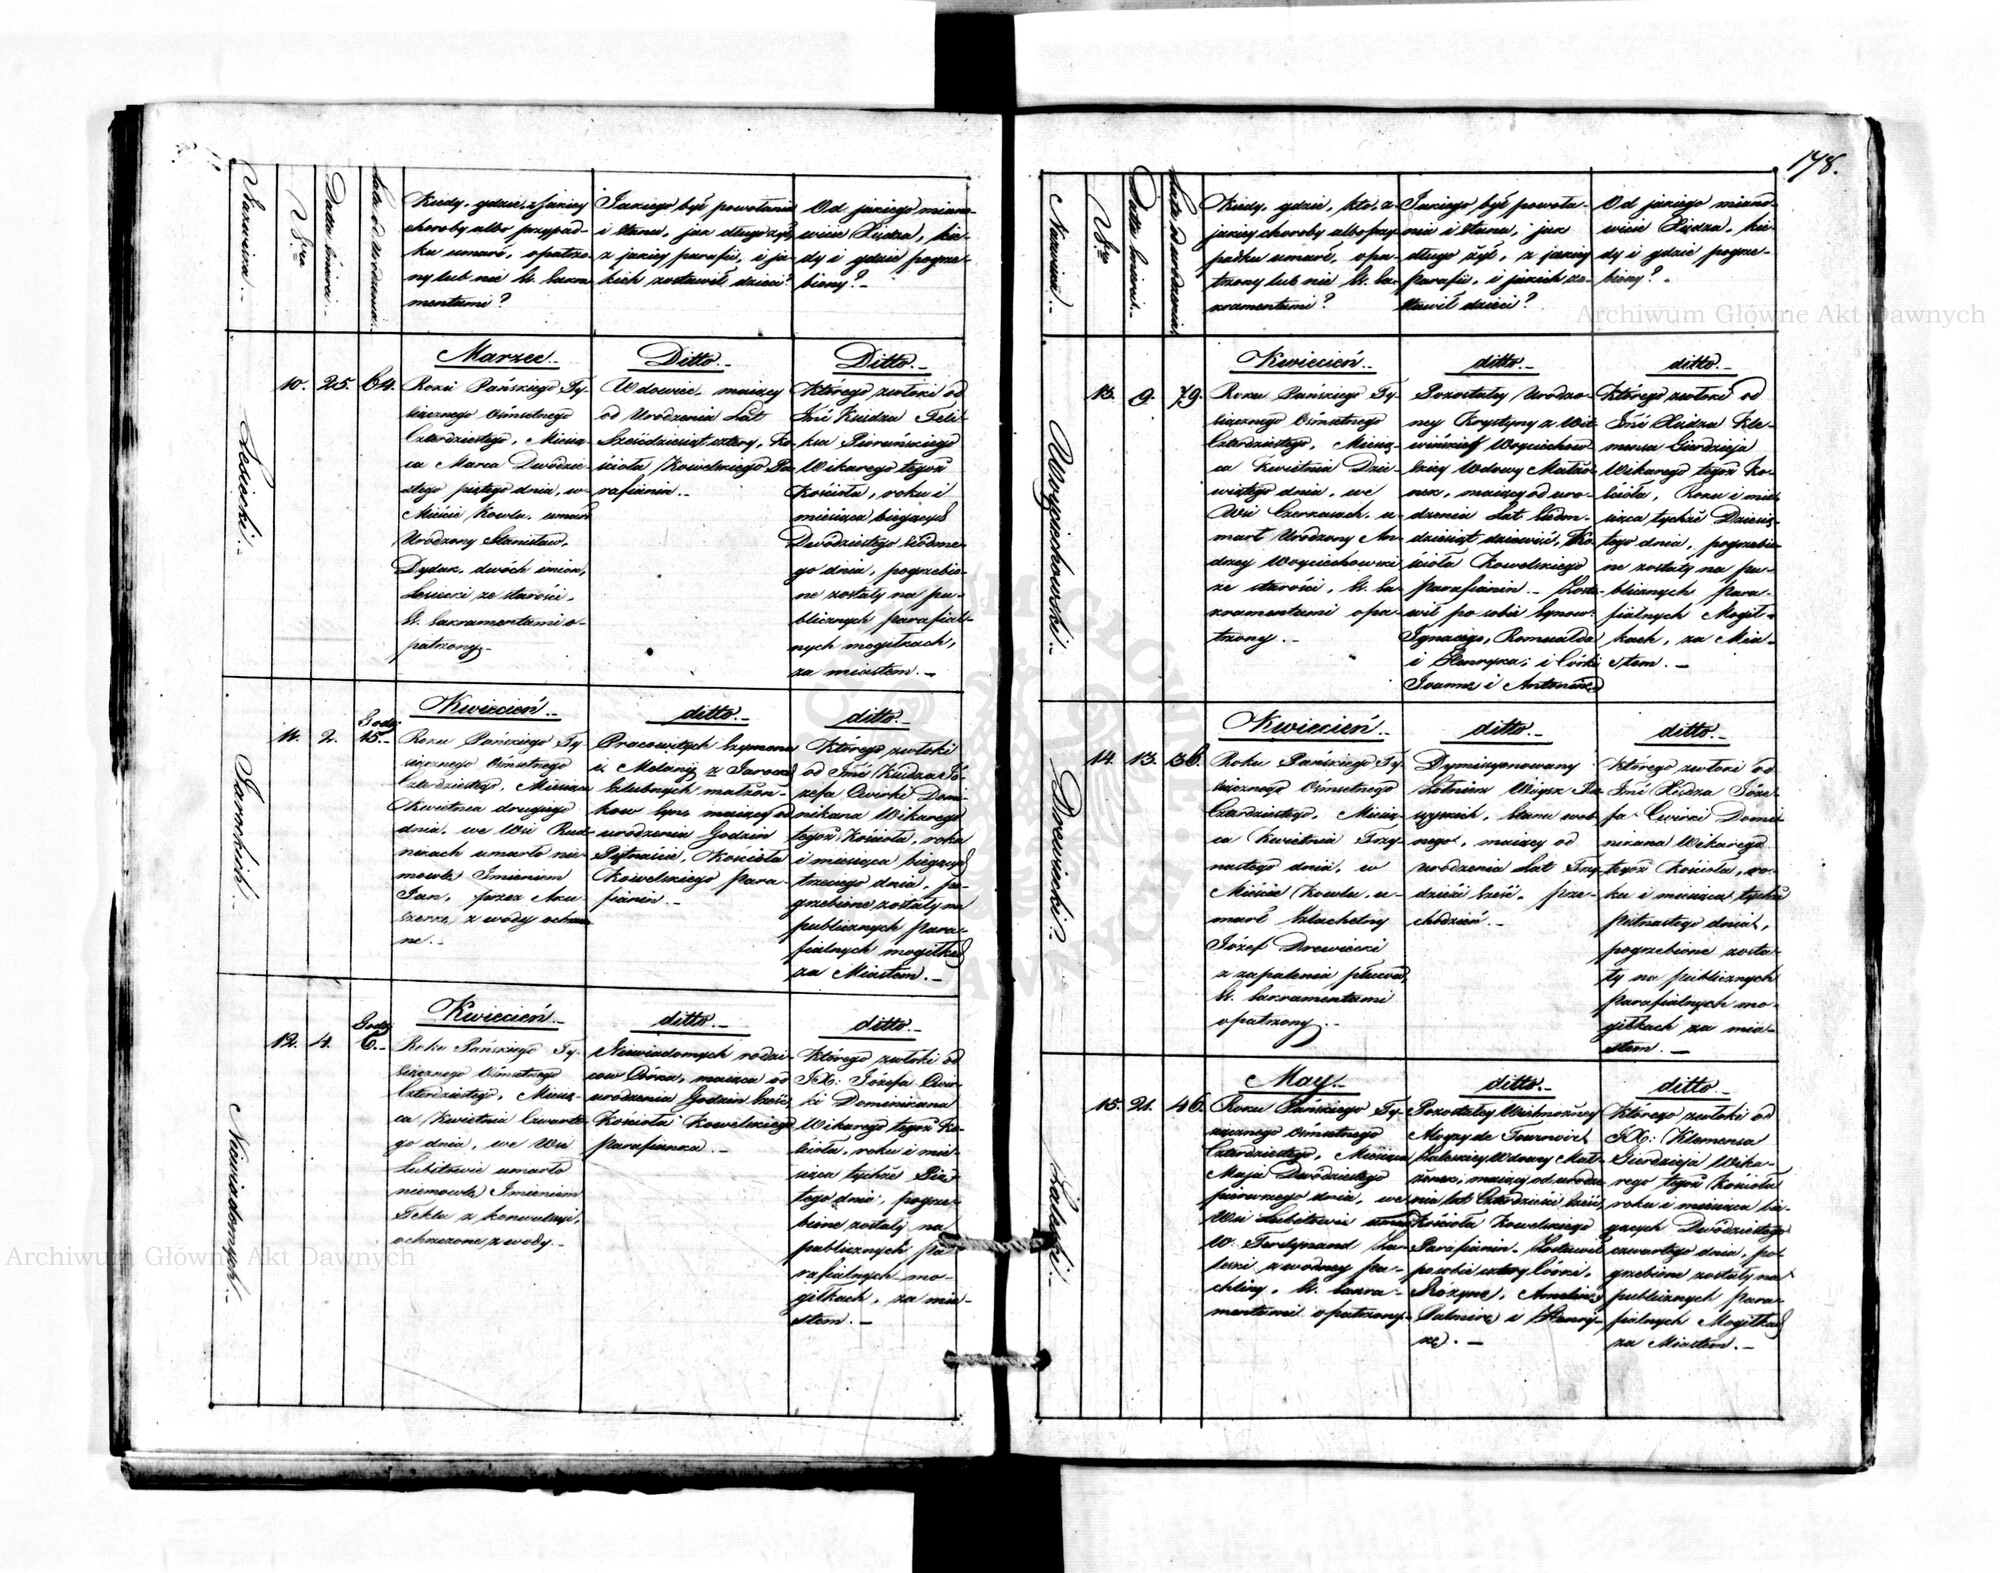 178.
Nazwiska.
Nro
Data śmierci.
Lata od urodzenia.
Kiedy, gdzie, z jakiey
choroby albo przypad-
ku umarł, opatrzo-
ny lub nie śś. Sakra-
mentami?
Jakiego był powołania
i stanu, jak długo żył,
z jakiey parafii, i ja-
kich zostawił dzieci?
Od jakiego miano-
wicie Xiędza, kie-
dy i gdzie pogrze-
biony?
Łosiecki.
10.
25.
64.
Marzec.
Roku Pańskiego Ty-
siącznego Ośmsetnego
Czterdziestego, Miesią-
ca Marca Dwódzie-
stego piątego dnia, w
Mieście Kowlu, umarł
Urodzony Stanisław,
Dydak, dwóch imion,
Łosiecki ze starości,
śś. Sakramentami o-
patrzony.
Ditto.
Wdowiec, maiący
od Urodzenia Lat
Sześćdziesiąt cztery, Ko-
ścioła Kowelskiego Pa-
rafianin.
Ditto.
Którego zwłoki od
Jmć Xiędza Feli-
xa Pioruńskiego
Wikarego tegoż
Kościoła, roku i
miesiąca bieżących
Dwódziestego siódme-
go dnia, pogrzebio-
ne zostały na pu-
blicznych parafial-
nych mogiłkach,
za miastem.
11.
2.
Godz.
15.
Kwiecień.
Roku Pańskiego Ty-
siącznego Ośmsetnego
Czterdziestego, Miesiąca
Kwietnia drugiego
dnia, we Wsi Rud-
nikach umarło nie-
mowle Imieniem
Jan, przez Aku-
szerkę z wody ochrzczo-
ne.
ditto.
Pracowitych Szymona
i Melanij z
ślubnych małżon-
kow Syn, maiący od
urodzenia Godzin
Piętnaście, Kościoła
Kowelskiego Para-
fianin.
ditto.
Którego zwłoki
od Jmć Xiędza Jó-
zefa Cwirki Domi-
nikana Wikarego
tegoż Kościoła, roku
i miesiąca bieżących
trzeciego dnia, po-
grzebione zostały na
publicznych para-
fialnych mogiłkach
za Miastem.
Niewiadomych.
12.
4.
Godz.
6.
Kwiecień.
Roku Pańskiego Ty-
siącznego Ośmsetnego
Czterdziestego, Miesią-
ca Kwietnia Czwarte-
go dnia, we Wsi
Lubitowie umarło
niemowle Imieniem
Tekla z konwulsyi,
ochrzczone z wody.
ditto.
Niewiadomych rodzi-
cow Córka, maiąca od
urodzenia Godzin Sześć,
Kościoła Kowelskiego
parafianka.
ditto.
Którego zwłoki od
JX: Józefa Cwir-
ki Dominikana
Wikarego tegoż Ko-
ścioła, roku i mie-
siąca tychże Pią-
tego dnia, pogrze-
bione zostały na
publicznych pa-
rafialnych mo-
giłkach, za mia-
stem.
Nazwiska.
Nro
Data śmierci.
Lata od urodzenia.
Kiedy, gdzie, kto, z
jakiey choroby albo przy-
padku umarł, opa-
trzony lub nie śś. Sa-
kramentami?
Jakiego był powoła-
nia i stanu, jak
długo żył, z jakiey
Parafii, i jakich zo-
stawił dzieci?
Od jakiego miano-
wicie Xiędza, kie-
dy i gdzie pogrze-
biony?
Woyciechowski.
13.
9.
79.
Kwiecień.
Roku Pańskiego Ty-
siącznego Ośmsetnego
Czterdziestego, Miesią-
ca Kwietnia Dzie-
wiątego dnia, we
Wsi Czerkasach, u-
marł Urodzony An-
drzey Woyciechowski
ze starości, śś. Sa-
kramentami opa-
trzony.
ditto.
Pozostałey Urodzo-
ney Krystyny z Wit-
wińskich Woyciechow-
skiey Wdowy Małżo-
nek, maiący od uro-
dzenia Lat Siedm-
dziesiąt dziewięć, Ko-
ścioła Kowelskiego
Parafianin. Zosta-
wił po sobie Synow:
Ignacego, Romualda
i Henryka; i Córki
Joannę i Antoninę
ditto.
Którego zwłoki od
Jmć Xiędza Kle-
mensa Gierdzieja
Wikarego tegoż Ko-
ścioła, Roku i mie-
siąca tychże Dziesią-
tego dnia, pogrzebio-
ne zostały na pu-
blicznych para-
fialnych Mogił-
kach, za Mia-
stem.
Drewiecki?
14.
13.
36.
Kwiecień.
Roku Pańskiego Ty-
siącznego Ośmsetnego
Czterdziestego, Miesią-
ca Kwietnia Trzy-
nastego dnia, w
Mieście Kowlu, u-
marł Szlachetny
Józef Drewiecki
z zapalenia płucow,
śś. Sakramentami
opatrzony.
ditto.
Dymisyonowany
Żołnierz Woysk Ro-
ssyyskich, stanu wol-
nego, maiący od
urodzenia Lat Trzy-
dzieści sześć, prze-
chodzień.
ditto.
Którego zwłoki od
Jmć Xiędza Józe-
fa Cwirki Domi-
nikana Wikarego
tegoż Kościoła, ro-
ku i miesiąca tychże
piętnastego dnia,
pogrzebione zosta-
ły na publicznych
parafialnych mo-
giłkach za mia-
stem.
Zaleski.
15.
21.
46.
May.
Roku Pańskiego Ty-
siącznego Ośmsetnego
Czterdziestego, Miesiąca
Maja Dwódziestego
pierwszego dnia, we
Wsi Lubitowie umarł
W. Ferdynand Za-
leski z wodney pu-
chliny, śś. Sakra-
mentami opatrzony.
ditto.
Pozostałey Wielmożney
Aloyzy de
Zaleskiey Wdowy Mał-
żonek, maiący od urodze-
nia lat Czterdzieści sześć,
Kościoła Kowelskiego
Parafianin. Zostawił
po sobie cztery Córki,
Rózynę, Amelinę
Palmirę i Henry-
kę.
ditto.
Którego zwłoki od
JX: Klemensa
Gierdzieja Wika-
rego tegoż Kościoła
roku i miesiąca bie-
żących Dwódziestego
czwartego dnia, po-
grzebione zostały na
publicznych para-
fialnych Mogiłkach
za Miastem.
Archiwum Główne Akt Dawnych
Archiwum Główne Akt Dawnych